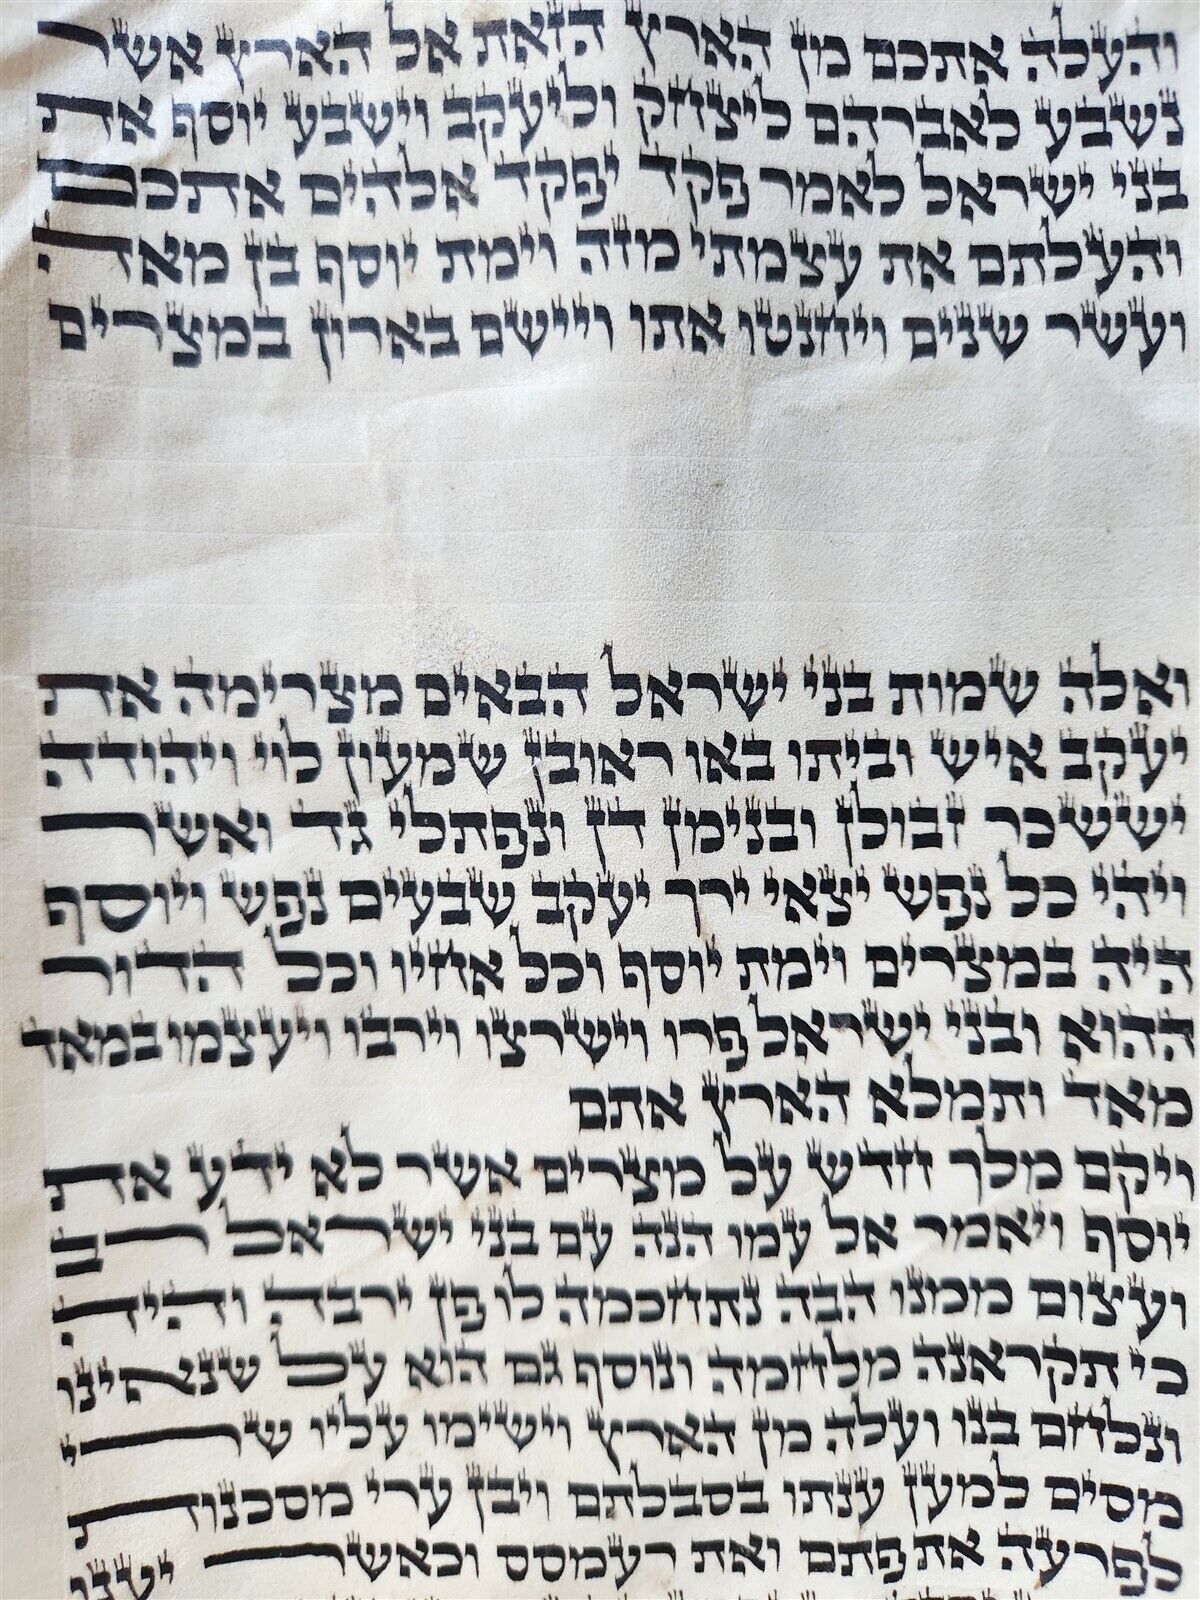 והעלה אתכם מן הארץ הזאת אל הארץ אשר
נשבע לאברהם ליצחק וליעקב וישבע יוסף את
בני ישראל לאמר פקד יפקד אלהים אתכם
והעלתם את עצמתי מזה וימת יוסף בן מאה
ועשר שנים ויחנטו אתו ויישם בארון במצרים
ואלה שמות בני ישראל הבאים מצרימה את
יעקב איש וביתו באו ראובן שמעון לוי ויהודה
יששכר זבולן ובנימן דן ונפתלי גד ואשר
ויהי כל נפש יצאי ירך יעקב שבעים נפש ויוסף
היה במצרים וימת יוסף וכל אחיו וכל הדור
ההוא ובני ישראל פרו וישרצו וירבו ויעצמו במאד
מאד ותמלא הארץ אתם
ויקם מלך חדש על מצרים אשר לא ידע את
יוסף ויאמר אל עמו הנה עם בני ישראל רב
ועצום ממנו הבה נתחכמה לו פן ירבה והיה
כי תקראנה מלחמה ונוסף גם הוא על שנאינו
ונלחם בנו ועלה מן הארץ וישימו עליו שרי
מסים למען ענתו בסבלתם ויבן ערי מסכנות
לפרעה את פתם ואת רעמסס וכאשר יענו